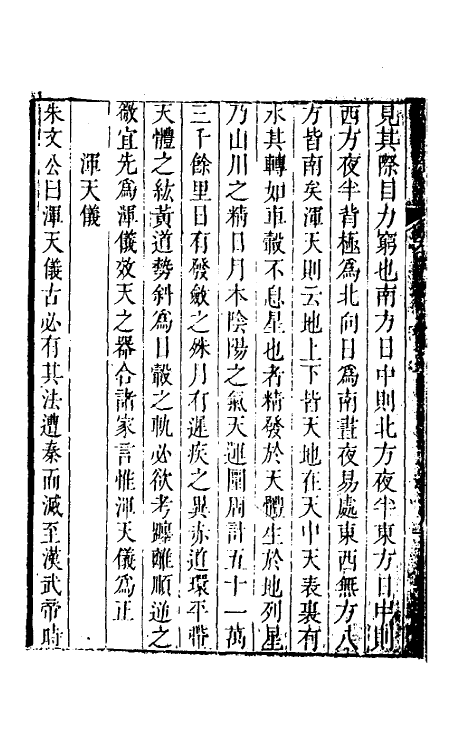 見其際目力窮也南方日中則北方夜半東方日中則
西方夜半背極爲北向日爲南晝夜易處東西無方八
方皆南矣渾天則云地上下皆天地在天中天表裏有
水其轉如車轂不息星也者精發於天體生於地列星
乃山川之精日月本陰陽之氣天運圍周計五十一萬
三千餘里日有發斂之殊月有遲疾之異赤道環平帶
天體之紘黃道勢斜爲日轂之軌必欲考躔離順逆之
徵宜先爲渾儀效天之器合諸家言惟渾天儀爲正
渾天儀
朱文公曰渾天儀古必有其法遭秦而滅至漢武帝時